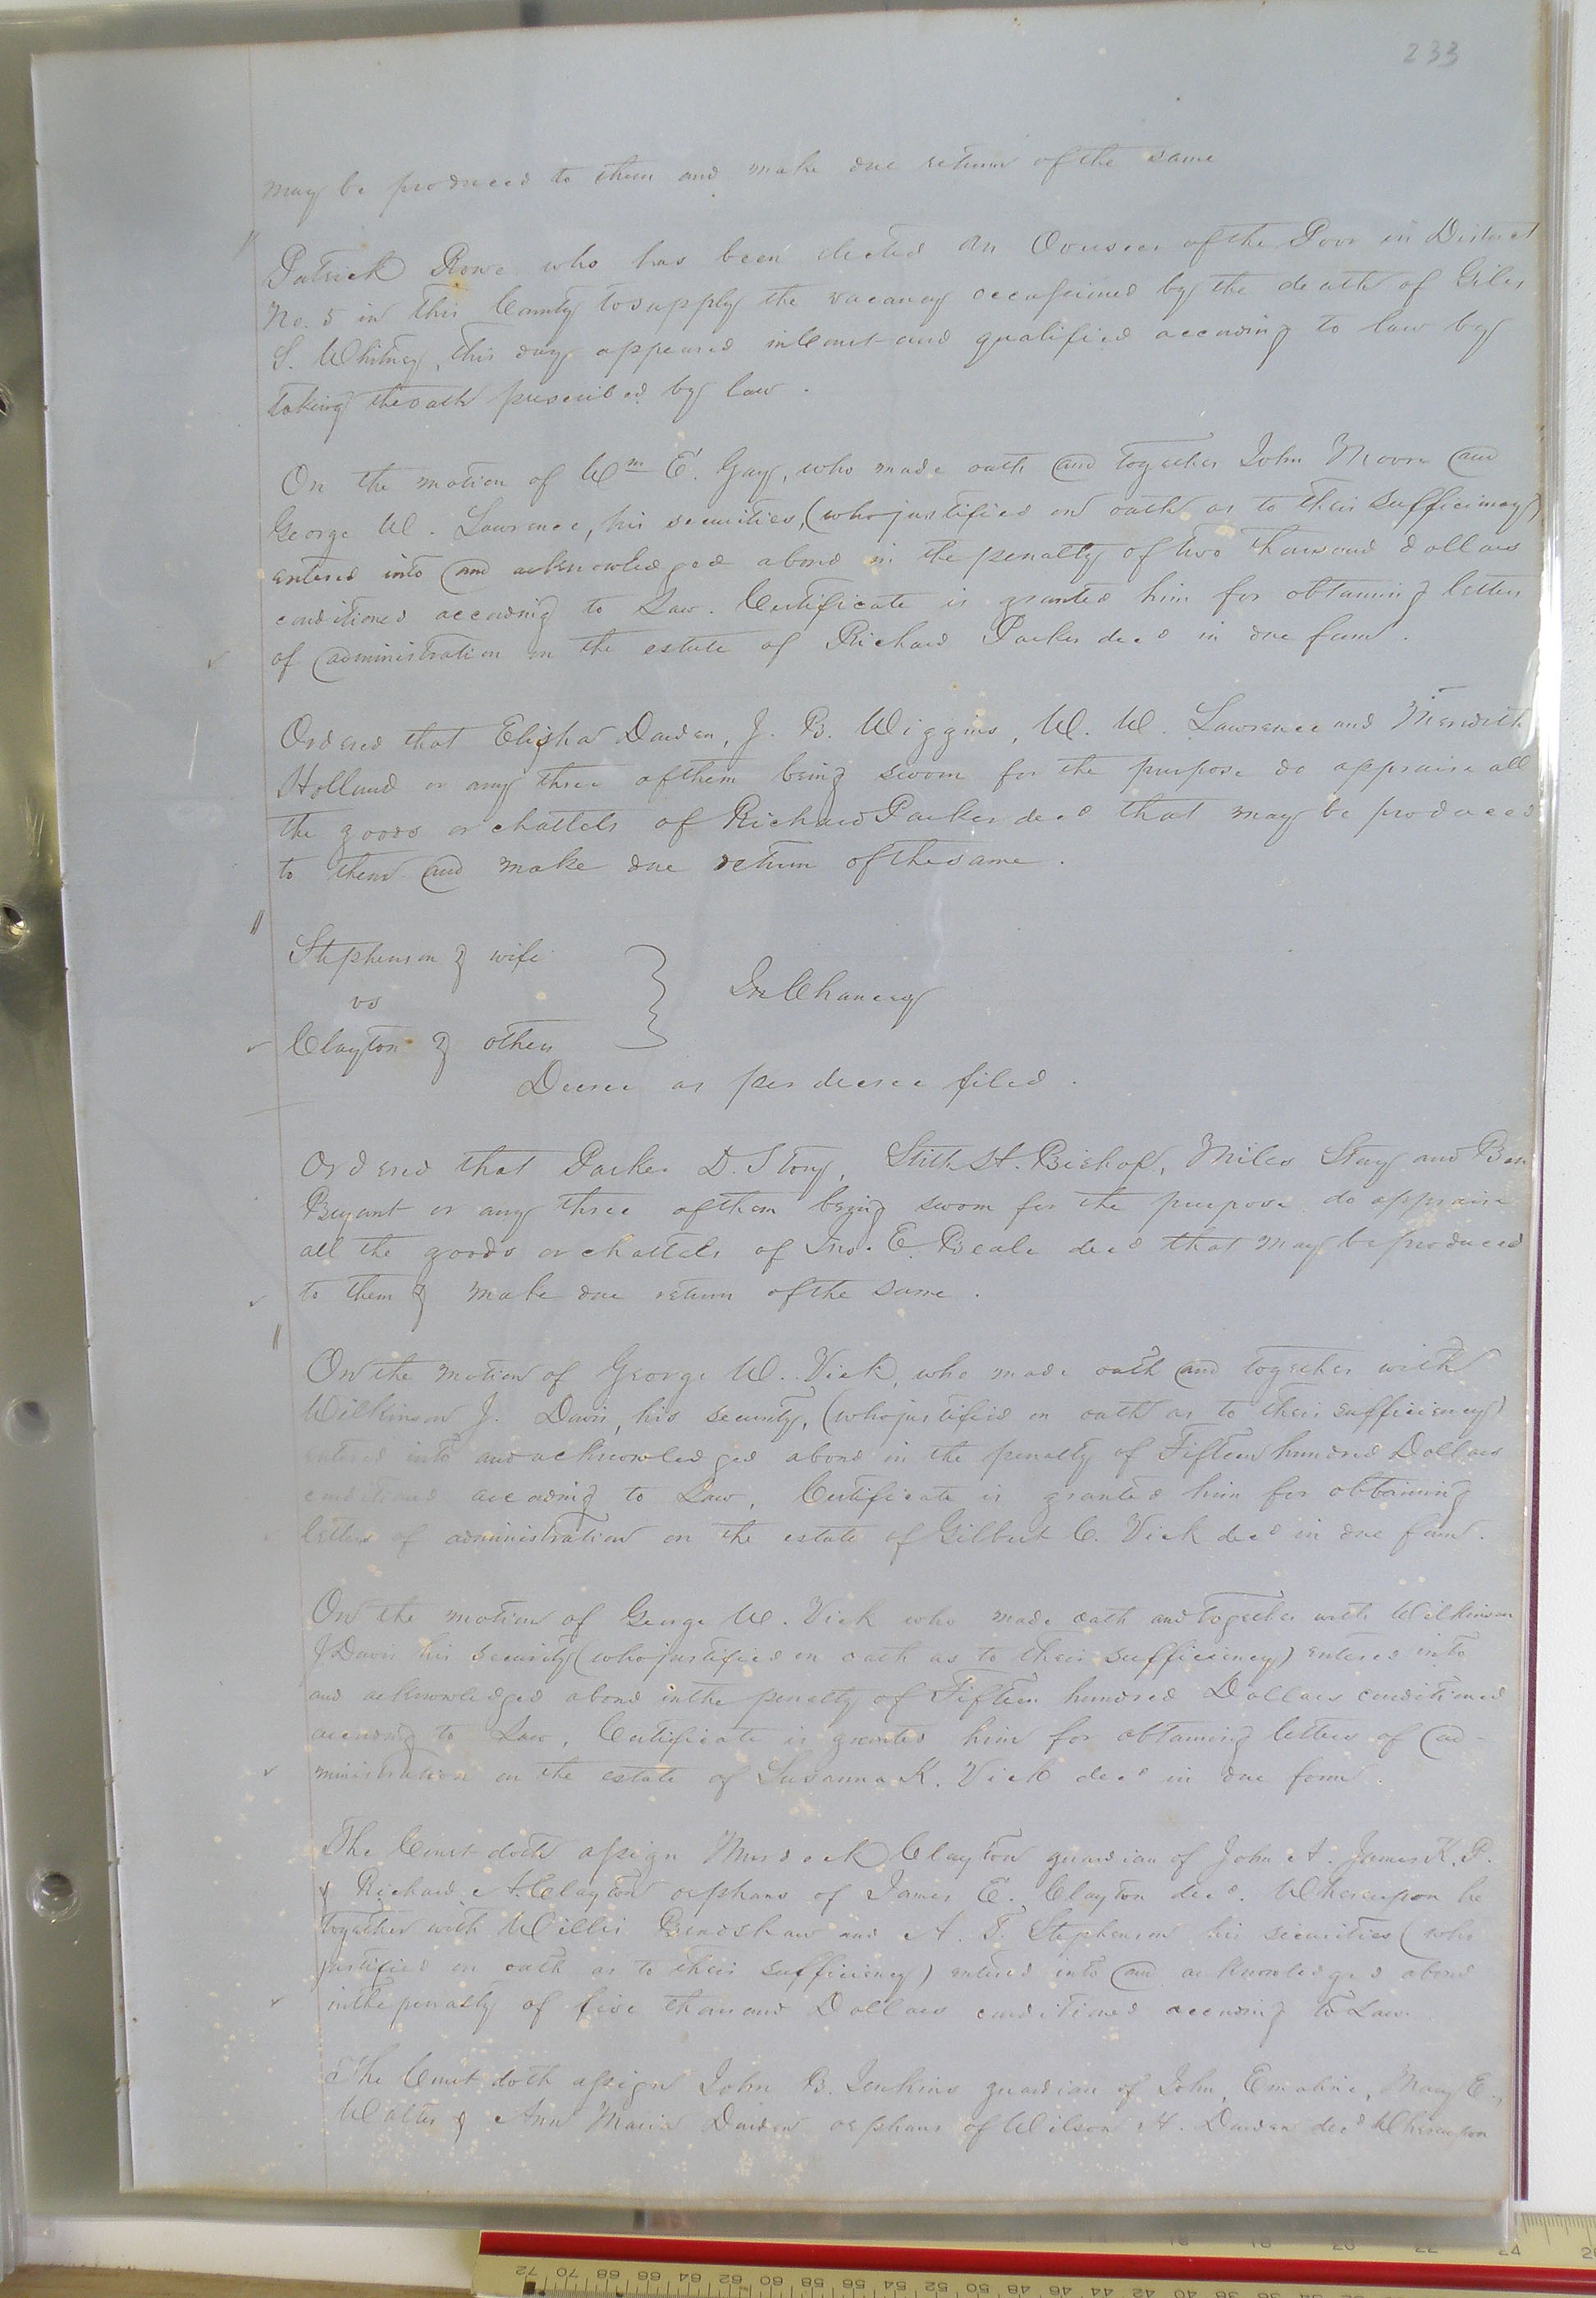 233
may be produced to them and make due return of the same
Patrick Rowe who has been elected an Overseer of the Poor in District
No. 5 in this County to supply the vacancy occasioned by the death of Giles
S. Whitney, this day appeared in Court and qualified according to law by
taking the oath prescribed by law.
On the motion of Wm E. Gay, who made oath and together John Moore and
George W. Lawrence, his securities, (who justified on oath as to their sufficiency)
entered into and acknowledged a bond in the penalty of two thousand dollars
conditioned according to Law. Certificate is granted him for obtaining letters
of administration on the estate of Richard Parker decd in due form.
Ordered that Elisha Darden, J. B. Wiggins, W. W. Lawrence and Meredith
Holland or any three of them being sworn for the purpose do appraise all
the goods or chattels of Richard Parker decd that may be produced
to them and make due return of the same.
Stephenson & wife
vs
In Chancery
Clayton & others
Decree as per decree filed.
Ordered that Parker D. Story, Stith H. Bishop, Miles Gray and Ben
Bryant or any three of them being sworn for the purpose do appraise
all the goods or chattels of Jno. E. Beale decd that may be produced
to them & make due return of the same.
On the motion of George W. Vick, who made oath and together with
Wilkinson J. Davis, his security, (who justified on oath as to their sufficiency)
entered into and acknowledged a bond in the penalty of Fifteen hundred Dollars
conditioned according to Law, Certificate is granted him for obtaining
letters of administration on the estate of Gilbert C. Vick decd in due form.
On the motion of George W. Vick who made oath and together with Wilkinson
J Davis his security (who justified on oath as to their sufficiency) entered into
and acknowledged a bond in the penalty of Fifteen hundred Dollars conditioned
according to Law, Certificate is granted him for obtaining letters of ad-
ministration on the estate of Susanna K. Vick decd in due form.
The Court doth assign Murdock Clayton guardian of John A. James K. P.
& Richard A. Clayton orphans of James E. Clayton decd. Whereupon he
together with Willis Bradshaw and A. T. Stephenson his securities (who
justified on oath as to their sufficiency) entered into and acknowledged a bond
in the penalty of five thousand Dollars conditioned according to Law.
The Court doth assign John B. Jenkins guardian of John, Emaline, Mary E.,
Walter & Ann Maria Darden orphans of Wilson H. Darden decd Whereupon